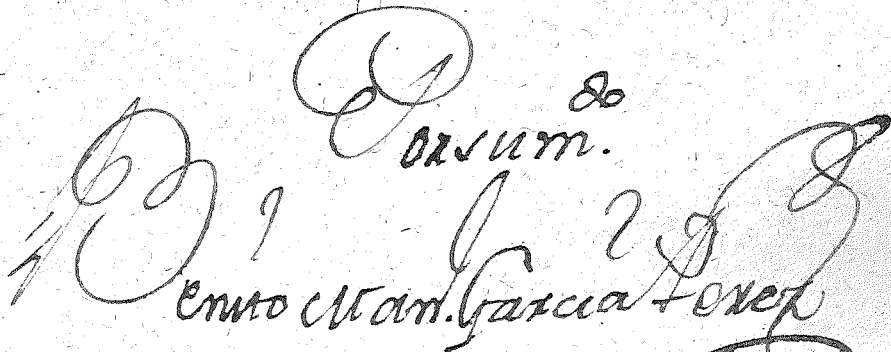 Por su m.do
Benito Man. Garcia Perez